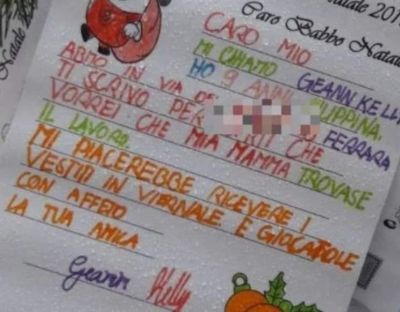 Natale 201
Caro Babbo Natale
CARO MIO
MI CHIAMO GEANN KELLY
HO 9 ANNI
ABITO IN VIA DE PUPPINA, FERRARA
TI SCRIVO PER CHE
VORREI CHE MIA MAMMA TROVASE
IL LAVORO.
MI PIACEREBBE RICEVERE I
VESTITI IN VIERNALE E GIOCATOLE
CON AFFETO
LA TUA AMICA
Geann Kelly